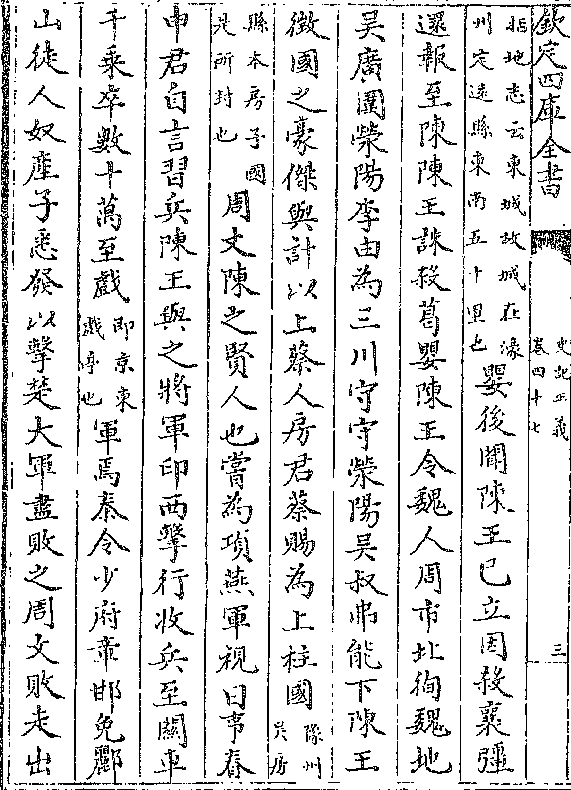 欽定四庫全書
史記正義
卷四十七
三
括地志云東城故城在濠
州定遠縣東南五十里也
嬰後聞陳王已立因殺襄彊
還報至陳陳王誅殺葛嬰陳王令魏人周市北徇魏地
吳廣圍滎陽李由為三川守守滎陽吳叔弗能下陳王
徵國之豪傑與計以上蔡人房君蔡賜為上柱國
豫州
吳房
縣本房子國
是所封也
周文陳之賢人也嘗為項燕軍視日事春
申君自言習兵陳王與之將軍印西擊行收兵至關車
千乗卒數十萬至戲
即京東
戲亭也
軍焉秦令少府章邯免酈
山徒人奴産子悉發以擊楚大軍盡敗之周文敗走出